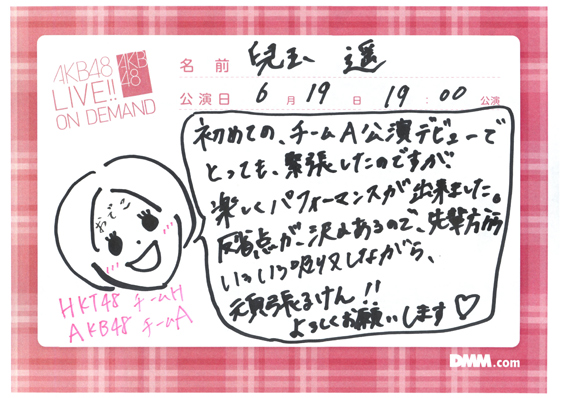 AKB48
LIVE!!
ON DEMAND
AKB
48
名前 兒玉 遥
公演日 6月19日 19:00公演
初めての、チームA公演デビューで
とっても、緊張したのですが
楽しくパフォーマンスが出来ました。
反省点が、沢山あるので、先輩方から
いろいろ吸収しながら、
頑張るけん!!
よろしくお願いします♡
おでこ
HKT48 チームH
AKB48 チームA
DMM.com